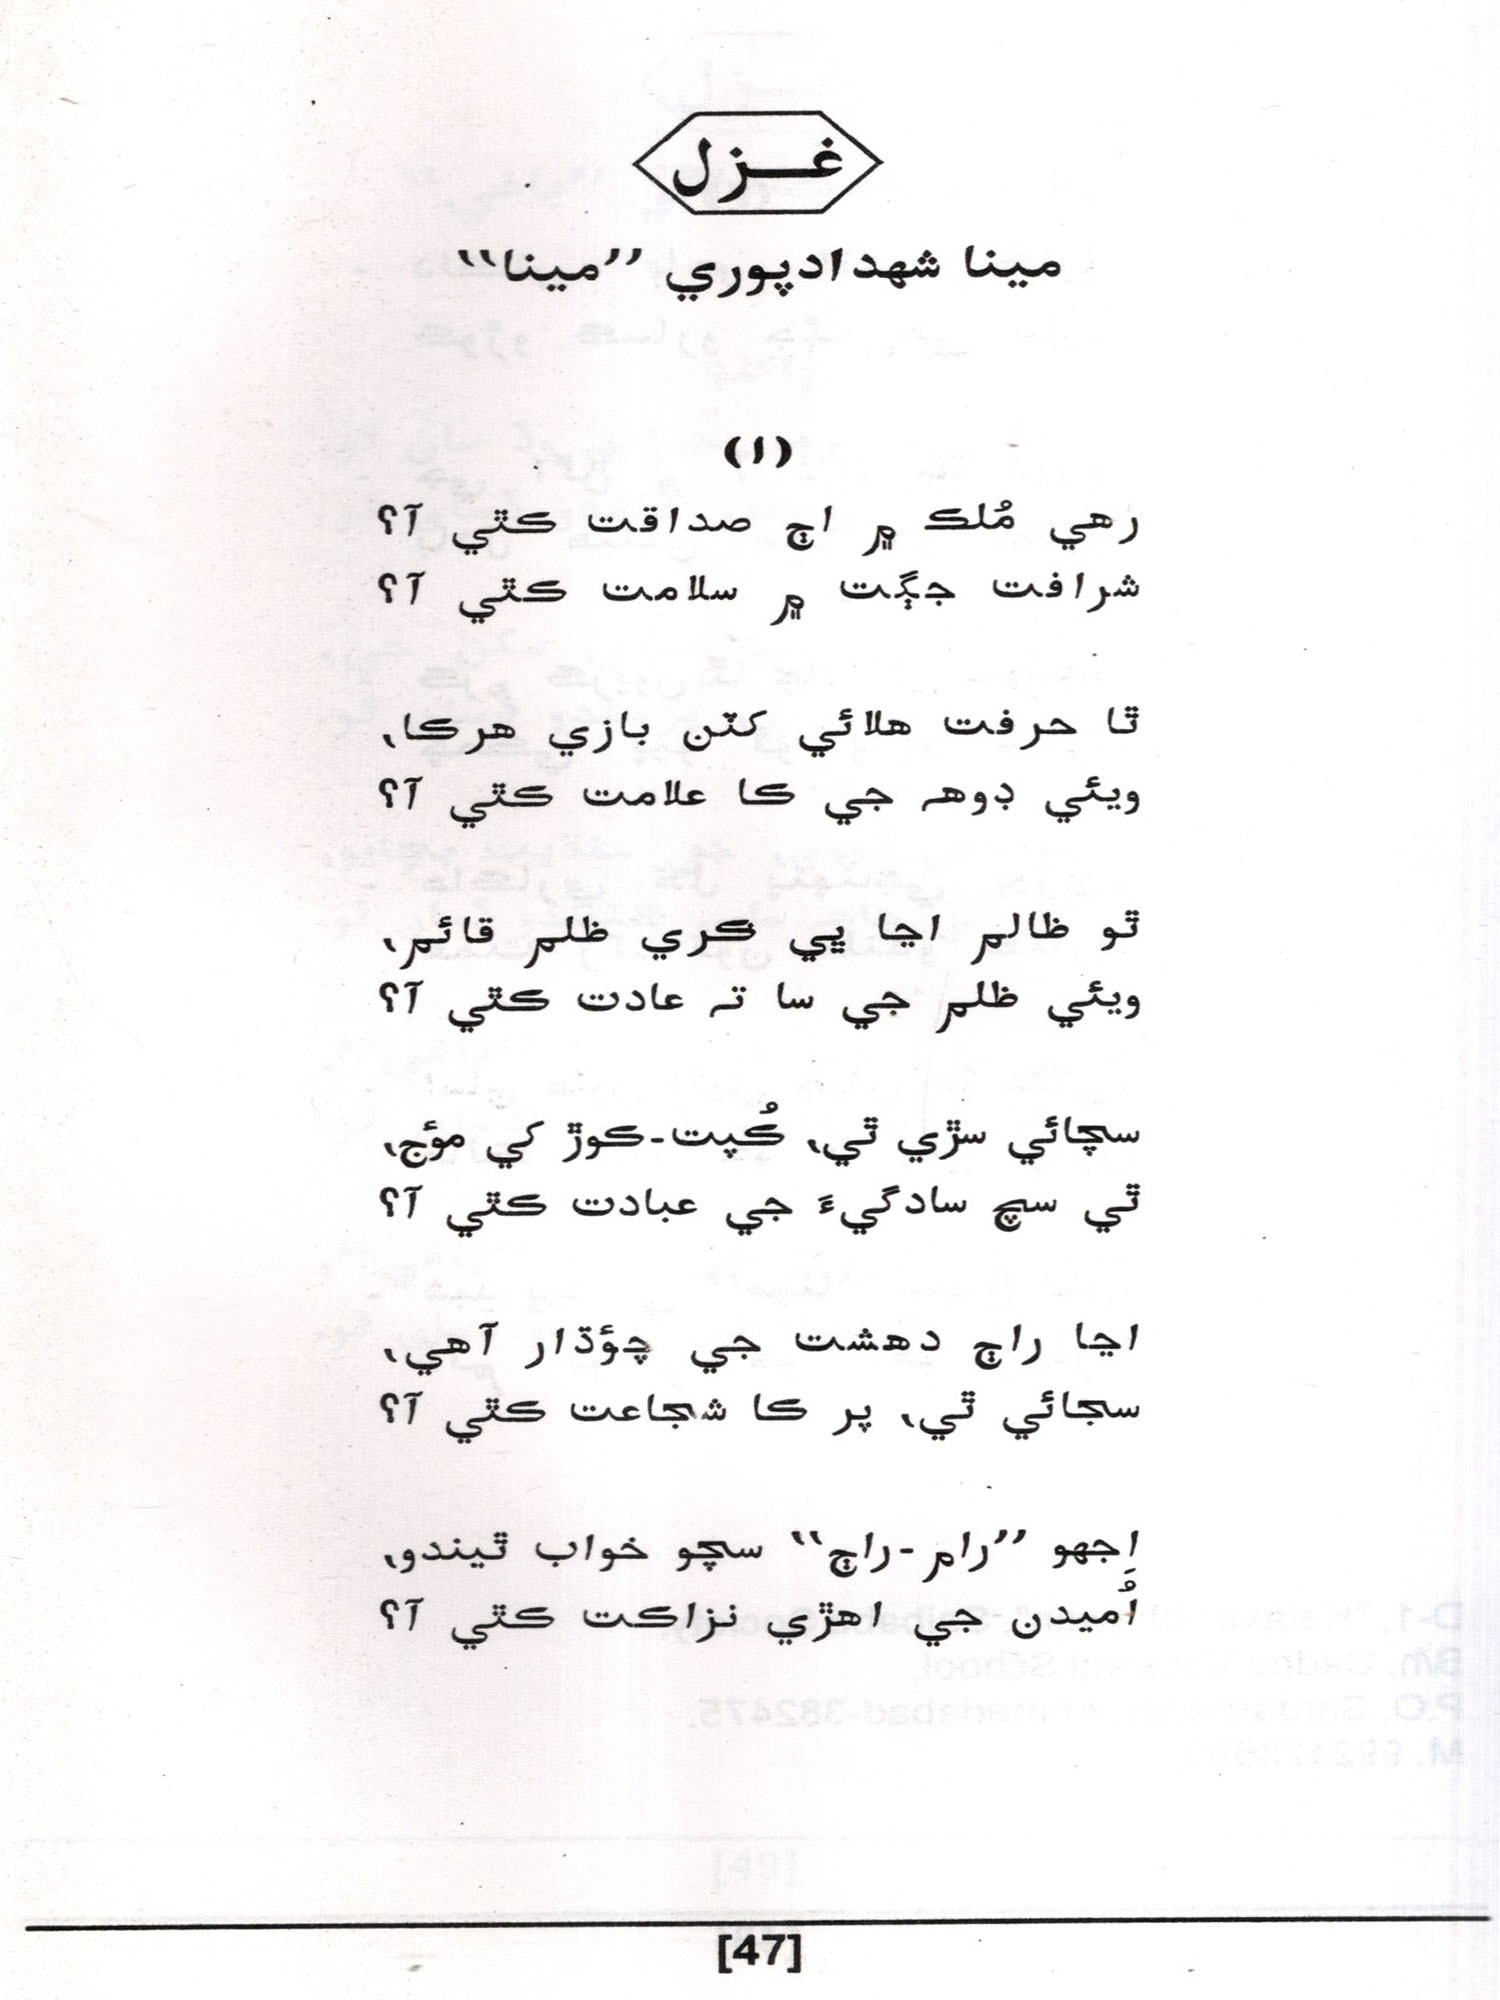 غــزل
مينا شهدادپوري ”مينا“
(۱)
رهي مُلڪ ۾ اڄ صداقت ڪٿي آ؟
شرافت جڳت ۾ سلامت ڪٿي آ؟
ٿا حرفت هلائي کٽن بازي هرڪا،
ويئي ڊوهہ جي ڪا علامت ڪٿي آ؟
ٿو ظالم اڃا ڀي ڪري ظلم قائم،
ويئي ظلم جي سا تہ عادت ڪٿي آ؟
سچائي سڙي ٿي، ڪُپت-ڪوڙ کي موُج،
ٿي سچ سادگيءَ جي عبادت ڪٿي آ؟
اڃا راڄ دهشت جي چؤڌار آهي،
سڃائي ٿي، پر ڪا شجاعت ڪٿي آ؟
اِجهو ”رام-راڄ“ سچو خواب ٿيندو،
اُميدن جي اهڙي نزاڪت ڪٿي آ؟
[47]